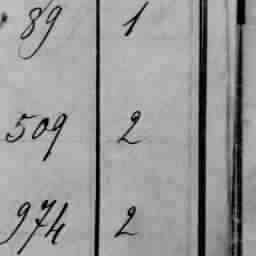 89 1
509 2
974 2